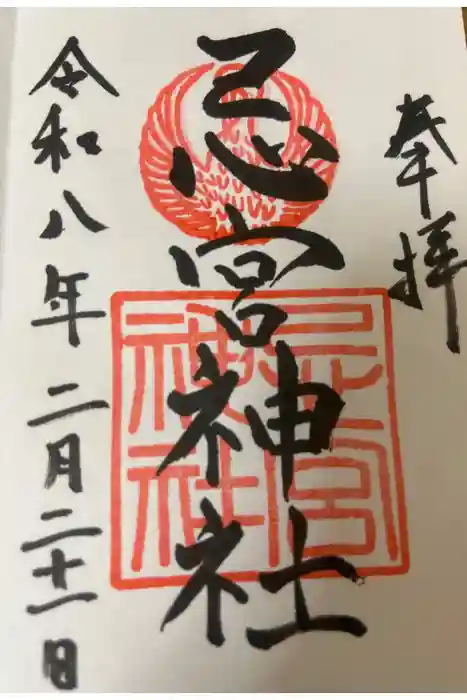 奉拝
忌宮神社
忌宮
神社
令和八年二月二十一日